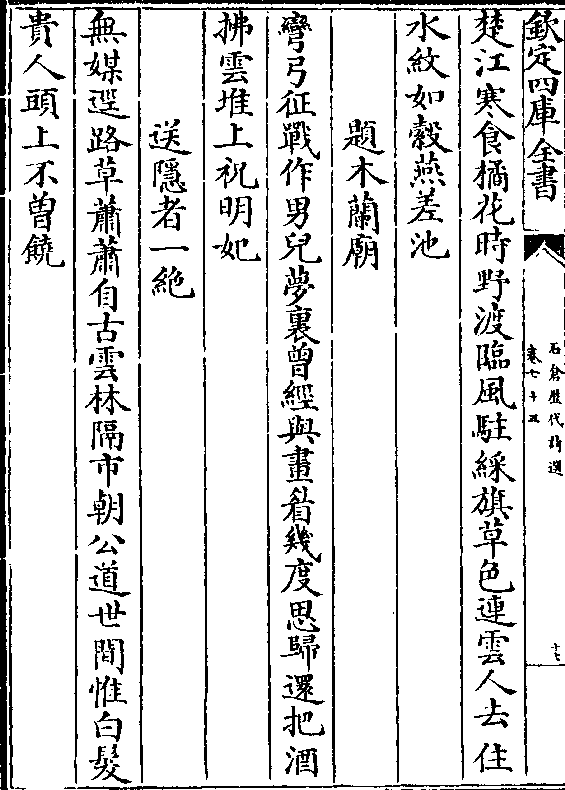 欽定四庫全書
石倉歷代詩選
卷七十五
十七
楚江寒食橘花時野渡臨風駐綵旗草色連雲人去住
水紋如縠燕差池
題木蘭廟
彎弓征戰作男兒夢裏曾經與畫眉幾度思歸還把酒
拂雲堆上祝明妃
送隱者一絶
無媒逕路草蕭蕭自古雲林隔市朝公道世間惟白髮
貴人頭上不曾饒